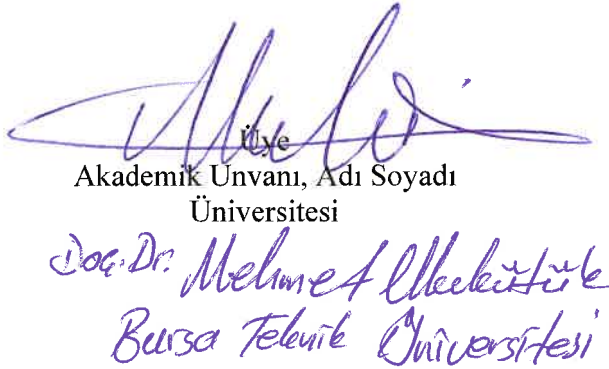 Üye
Akademik Unvanı, Adı Soyadı
Üniversitesi
Doç. Dr. Mehmet
Bursa Teknik Üniversitesi